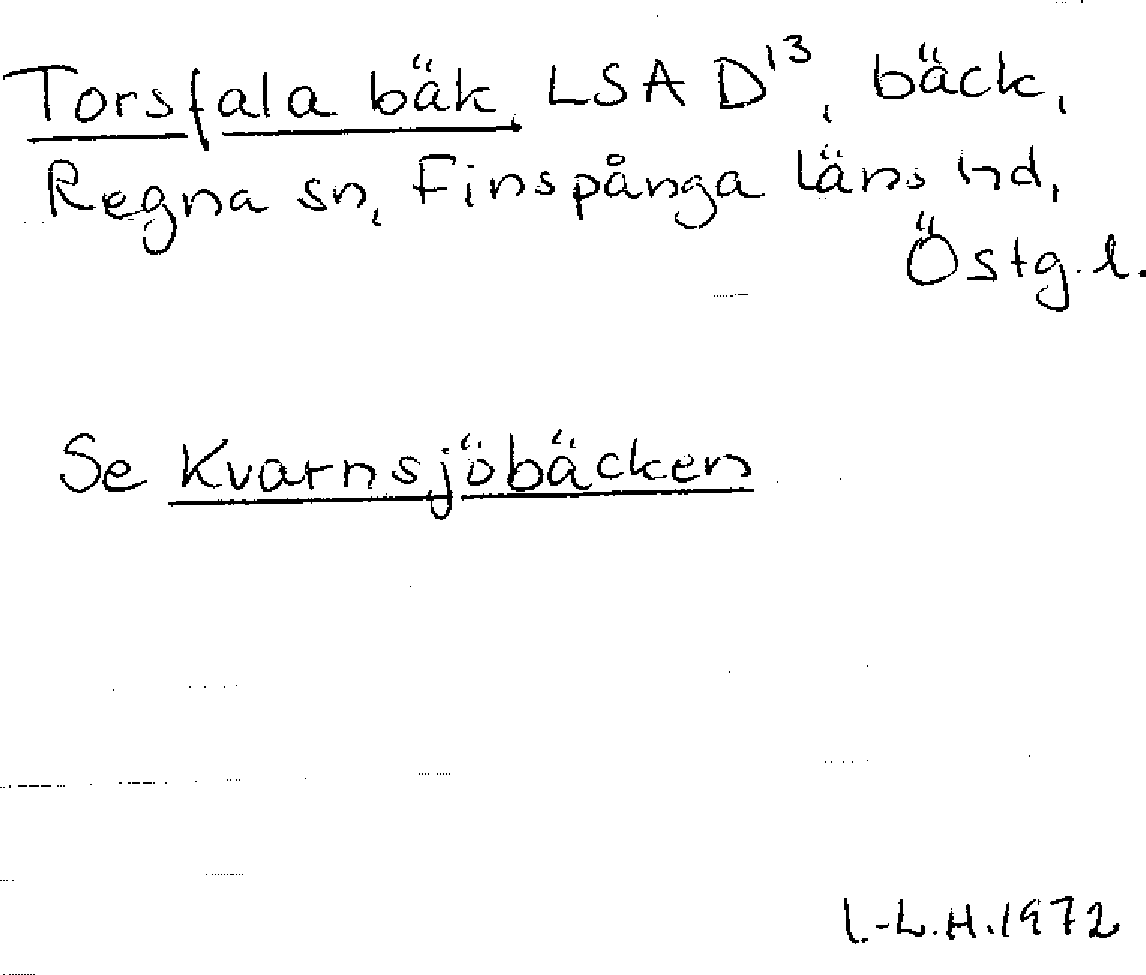 Torsfala bäk LSA D¹³, bäck,
Regna sn, Finspånga läns hd,
Östg. l.
Se Kvarnsjöbäcken
I.-L.H. 1972